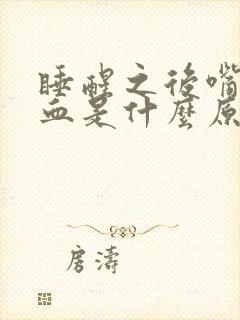 睡醒之後嘴
血是什麼原
房濤